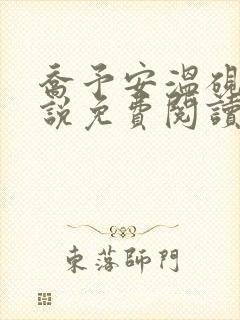 喬予安溫硯
說免費閱讀
東落師門